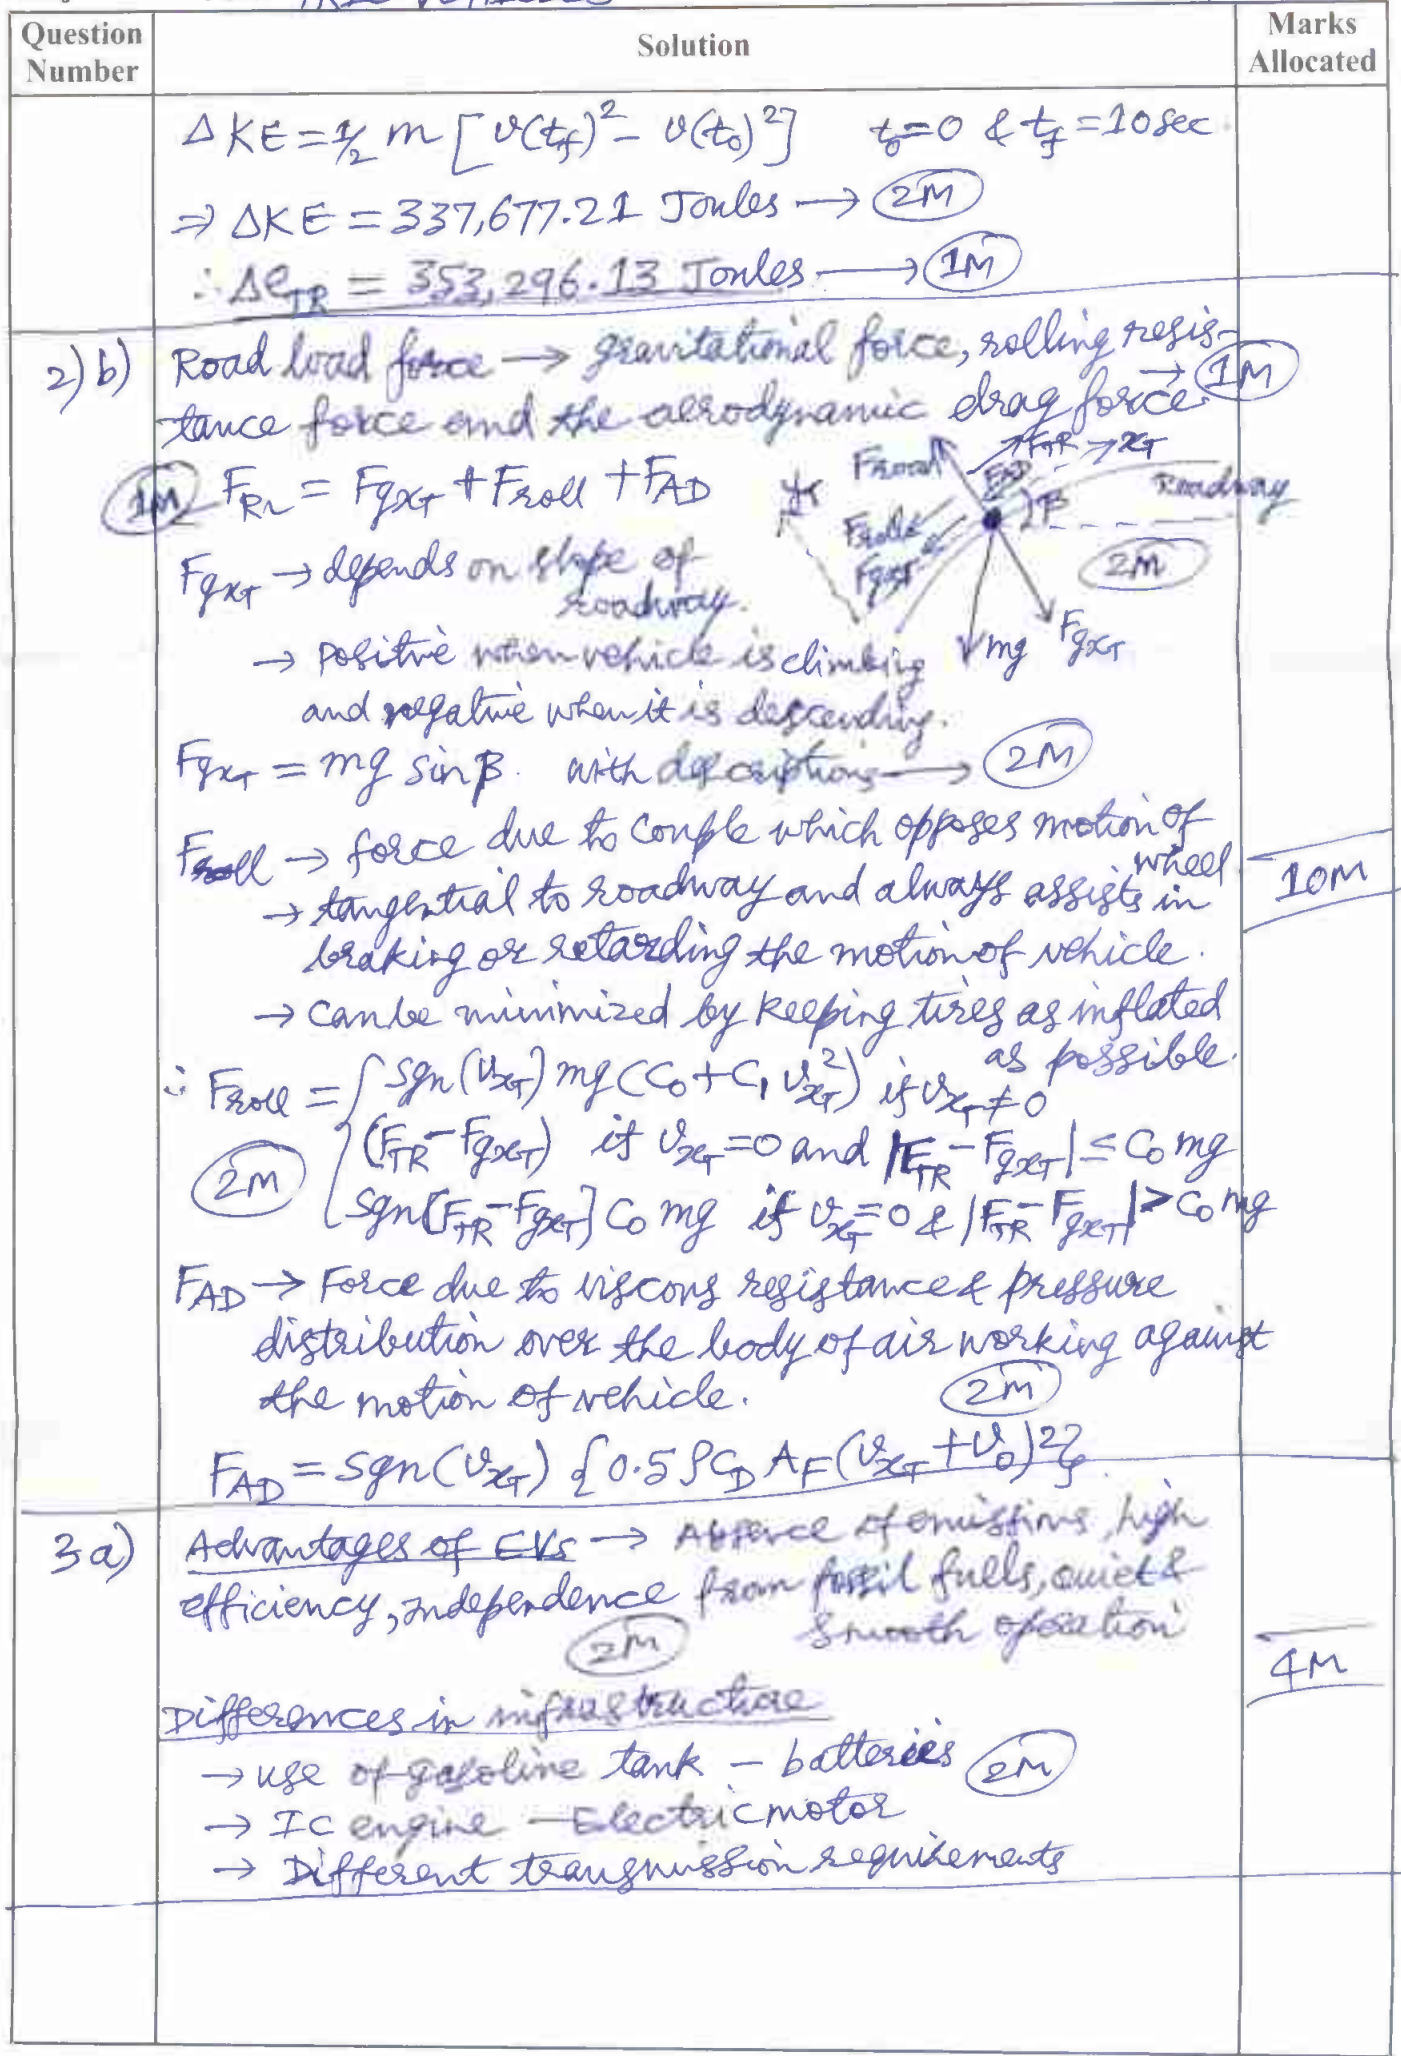 Question Number
Solution
Marks Allocated
ΔKE = 1/2 m [v(t_f)² - v(t_0)²] t_0=0 & t_f=10sec
⇒ ΔKE = 337,677.21 Joules → 2M
∴ Δe_TR = 353,296.13 Joules → 1M
2)b) Road load force → gravitational force, rolling resis-
tance force and the aerodynamic drag force. → 1M
1M F_RL = F_gxT + F_roll + F_AD
F_road F_TR → x_T
F_AD
Roadway
F_roll
β
F_gxT
2M
mg F_gxT
F_gxT → depends on slope of
roadway.
→ Positive when vehicle is climbing
and negative when it is descending.
F_gxT = mg sin β. with descriptions → 2M
F_roll → force due to couple which opposes motion of
wheel
→ tangential to roadway and always assists in
braking or retarding the motion of vehicle.
10M
→ Can be minimized by keeping tires as inflated
as possible.
∴ F_roll = { sgn(v_xT) mg (C_0 + C_1 v_xT²) if v_xT ≠ 0
(F_TR - F_gxT) if v_xT = 0 and |F_TR - F_gxT| ≤ C_0 mg
2M
sgn[F_TR - F_gxT] C_0 mg if v_xT = 0 & |F_TR - F_gxT| > C_0 mg
F_AD → Force due to viscous resistance & pressure
distribution over the body of air working against
the motion of vehicle. 2M
F_AD = sgn(v_xT) {0.5 ρ C_D A_F (v_xT + v_0)²}
3a) Advantages of EVs → Absence of emissions, high
efficiency, independence from fossil fuels, quiet &
smooth operation
2M
4M
Differences in infrastructure
→ use of gasoline tank - batteries 2M
→ IC engine - Electric motor
→ Different transmission requirements